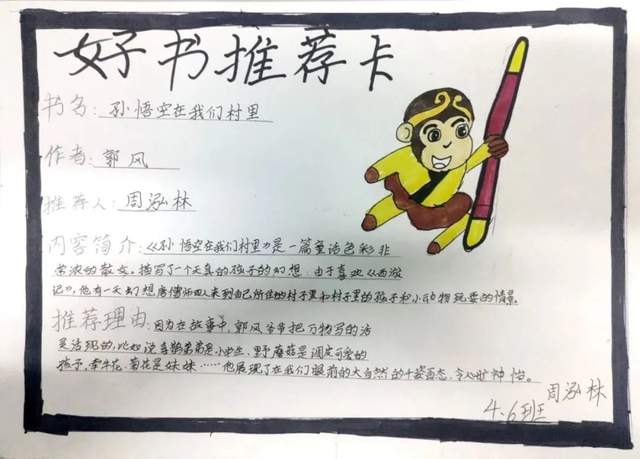 好书推荐卡
书名：孙悟空在我们村里
作者：郭风
推荐人：周泓林
内容简介：《孙悟空在我们村里》是一篇童话色彩非
常浓的散文。描写了一个天真的孩子的幻想。由于喜欢《西游
记》，他有一天幻想唐僧师四人来到自己所住的村子里和村子里的孩子和小动物玩耍的情景。
推荐理由：因为在故事中，郭风爷爷把万物写的活
灵活现的，比如说喜鹊弟弟是小学生、野蘑菇是调皮可爱的
孩子，牵牛花、菊花是妹妹……他展现了在我们眼前的大自然的千姿百态，令人心旷神怡。
周泓林
4.6班